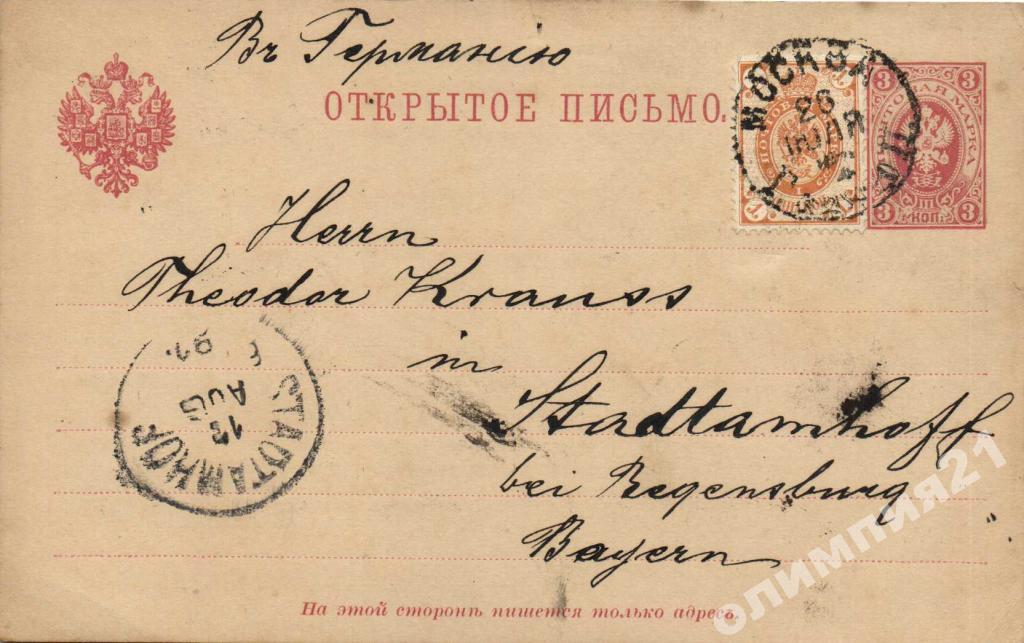 Въ Германiю
ОТКРЫТОЕ ПИСЬМО.
МОСКВА
26
ІЮЛЯ
3 3
ПОЧТОВАЯ МАРКА
III
3 КОП. 3
1
Herrn
Theodor Krauss
in
Stadtamhoff
bei Regensburg
Bayern
STADTAMHOF
12
AUG
92.
На этой сторонѣ пишется только адресъ.
олимпия21